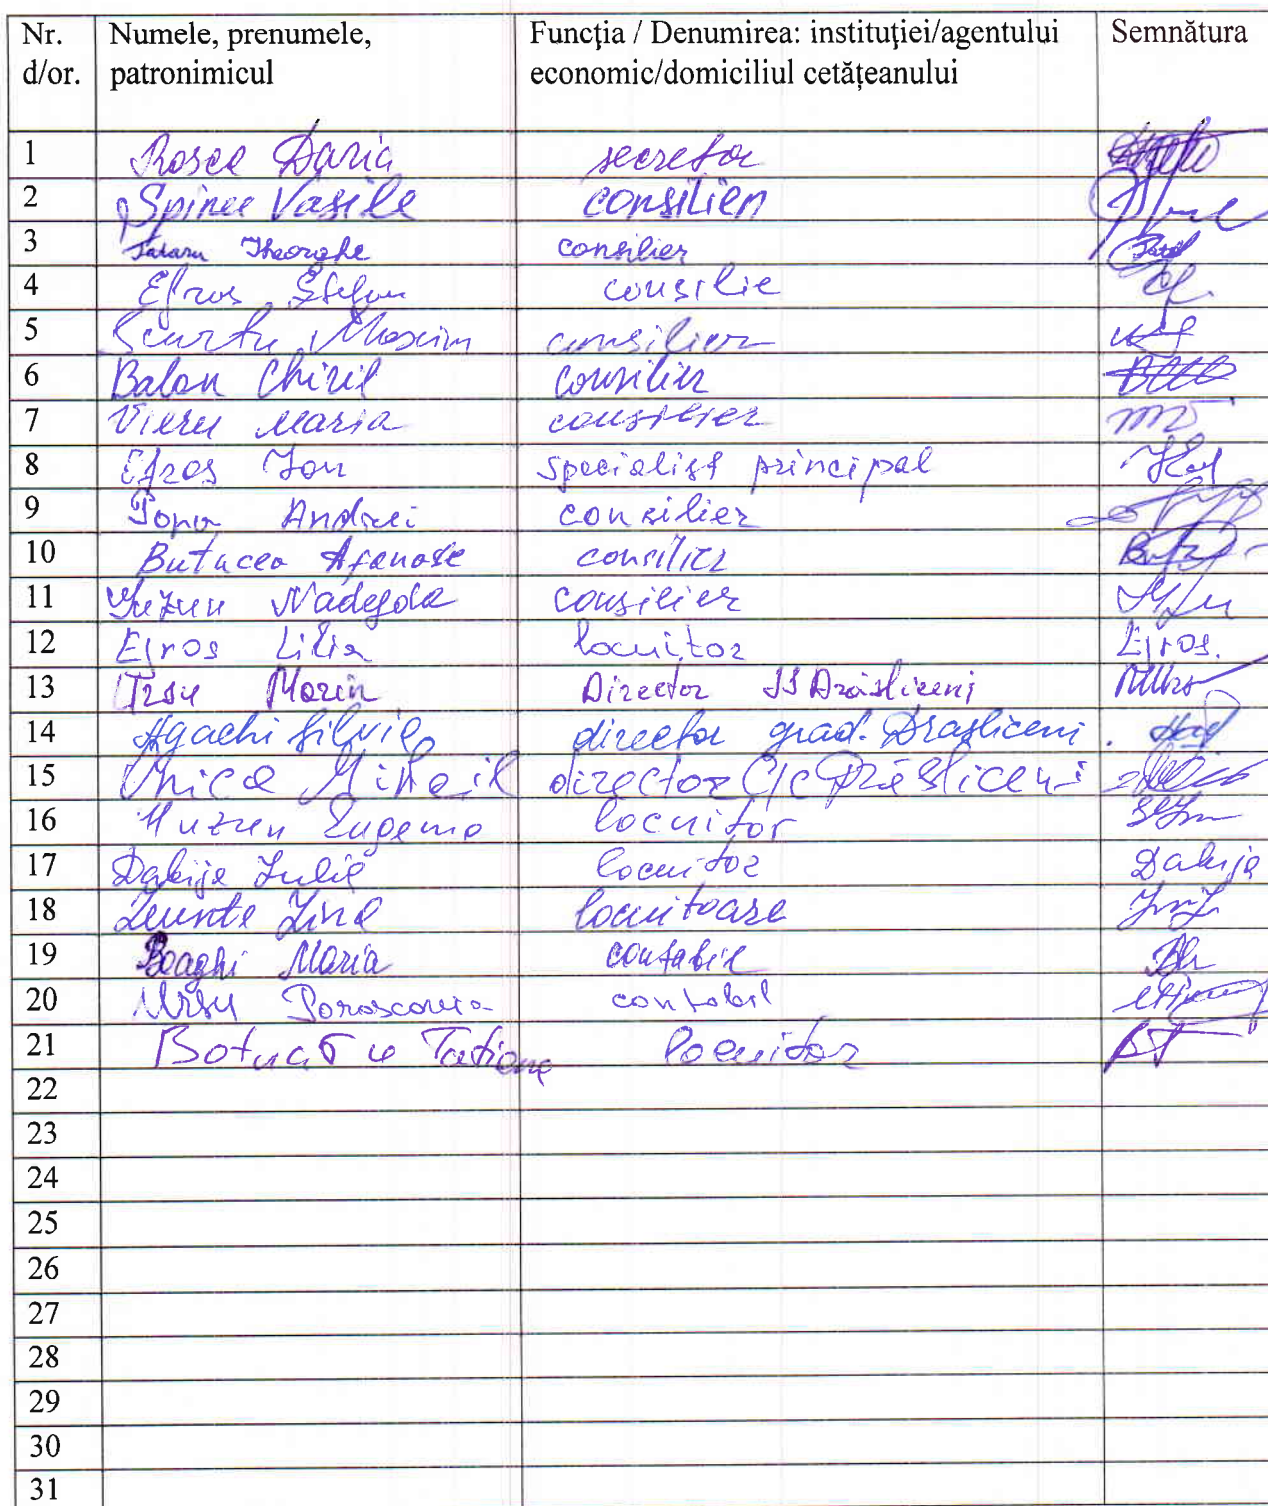 Nr. d/or. Numele, prenumele, patronimicul Funcţia / Denumirea: instituţiei/agentului economic/domiciliul cetăţeanului Semnătura
1 Rosca Daria secretar
2 Spinei Vasile consilier
3 Tataru Gheorghe consilier
4 Efros Ștefan consilie
5 Scurtu Maxim consilier
6 Balan Chiril consilier
7 Vieru Maria consilier
8 Efros Ion specialist principal
9 Popa Andrei consilier
10 Butucea Afanase consilier
11 Nadejda consilier
12 Efros Lilia locuitor Efros.
13 Ursu Marin Director Drăsliceni
14 Agachi Silvia director grad. Drasliceni
15 Unica Mihail director C/c Drăsliceni
16 Eugenia locuitor
17 Dabija Iulia locuitor Dabija
18 Zina locuitoare
19 Boaghi Maria contabil
20 Ursu Parascovia contabil
21 Tatiana locuitor
22
23
24
25
26
27
28
29
30
31